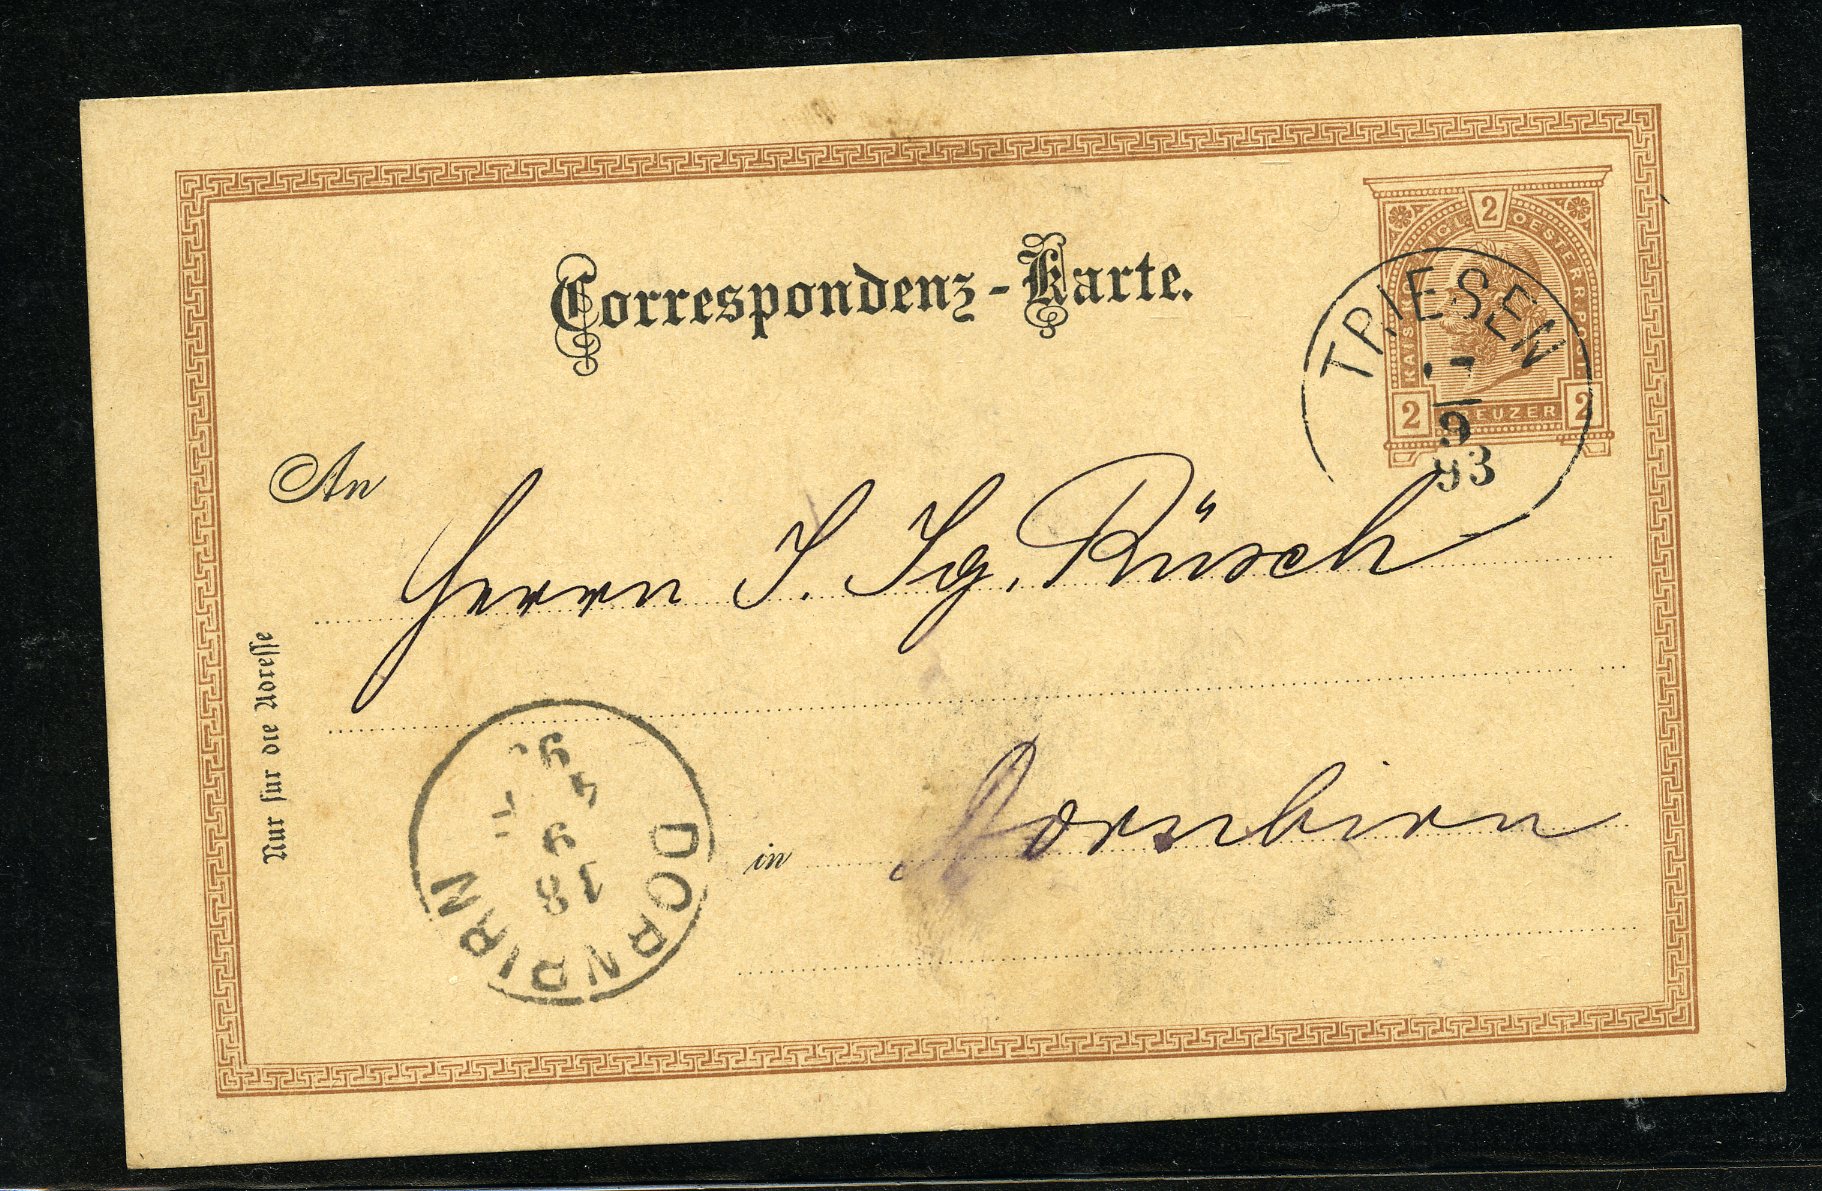 Correspondenz-Karte.
2
KAISERLICHE OESTERR. POST.
2 KREUZER 2
TRIESEN
9
93
An
Herrn J. Ig. Rüsch
in Dornbirn
Nur für die Adresse
DORNBIRN
18
9
4